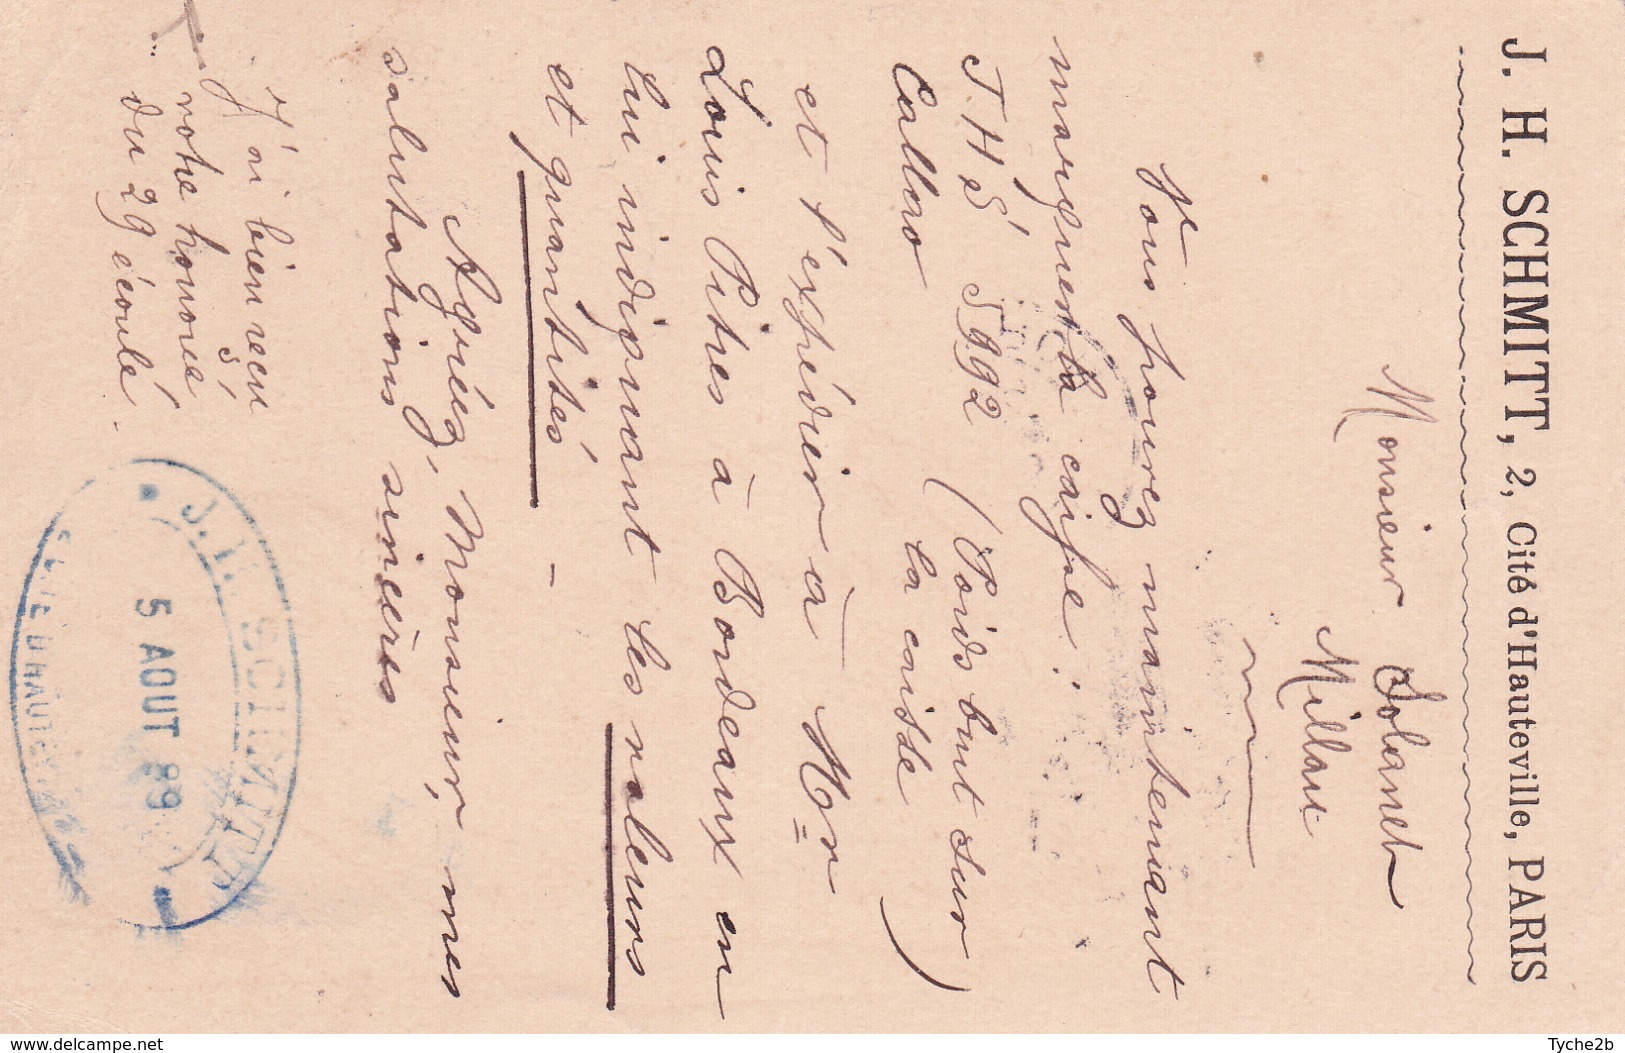 J. H. SCHMITT, 2, Cité d'Hauteville, PARIS
Monsieur Solanet
Millau
Vous pourez maintenant
marquer la caisse :
J H S 5992 (Poids brut sur
Callao la caisse)
et l'expédier à Mr
Louis Pitres à Bordeaux en
lui indiquant les valeurs
et quantités –
Agréez, Monsieur, mes
salutations sincères
J'ai bien reçu
votre honorée
du 29 écoulé.
J. H. SCHMITT
5 AOUT 89
www.delcampe.net
Tyche2b